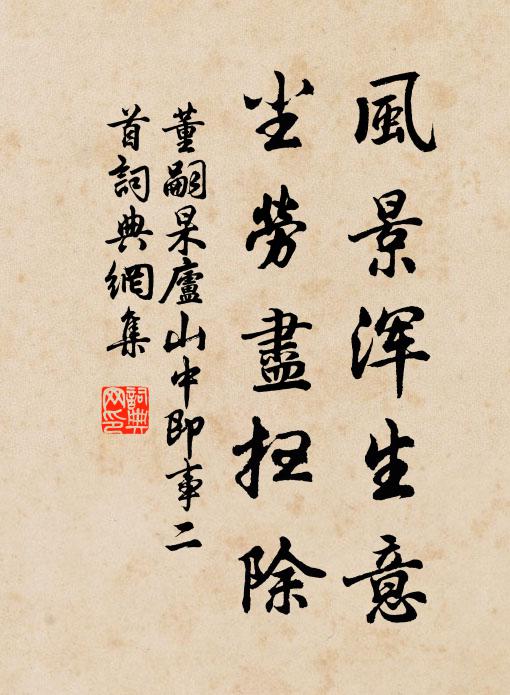 風景浑生意
尘勞盡扫除
董嗣杲廬山中即事二
首詞典網集
詞典网印